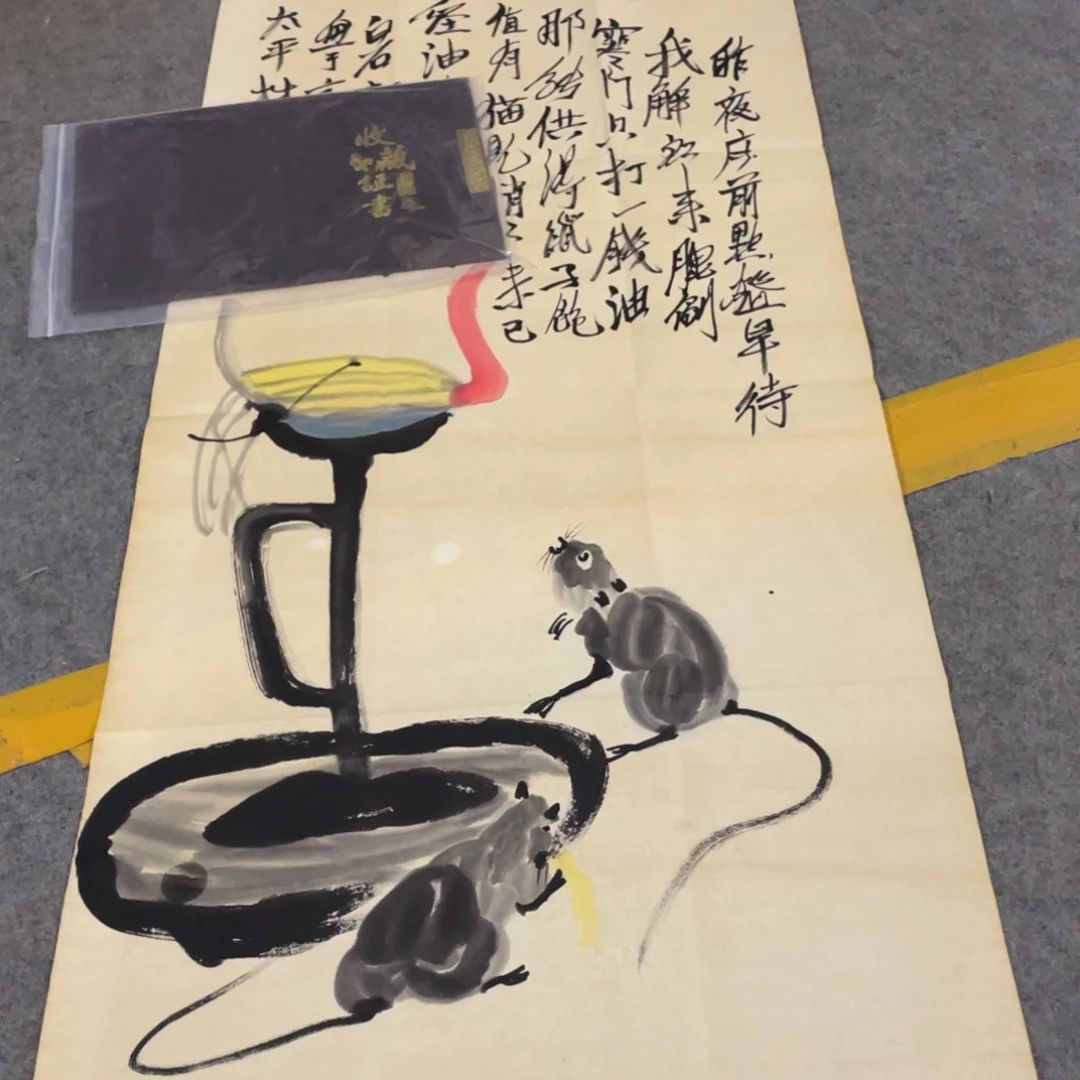 昨夜床前點燈早待
我解衣来睡倒
寒門只打一錢油
那能供得鼠子飽
值有猫児肖々来已
經油
白石
太平
收藏
證書